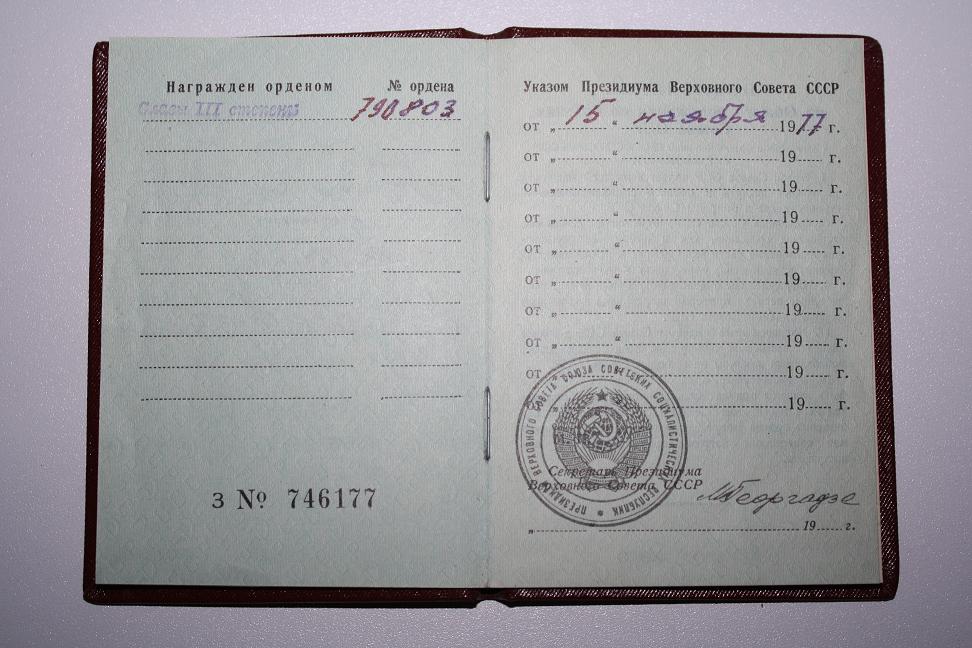 Награжден орденом № ордена
Славы III степени 790803
З № 746177
Указом Президиума Верховного Совета СССР
от „ 15 “ ноября 1977 г.
от „ “ 19 г.
от „ “ 19 г.
от „ “ 19 г.
от „ “ 19 г.
от „ “ 19 г.
от „ “ 19 г.
от „ “ 19 г.
от „ “ 19 г.
„ “ 19 г.
ПРЕЗИДИУМ ВЕРХОВНОГО СОВЕТА СОЮЗА СОВЕТСКИХ СОЦИАЛИСТИЧЕСКИХ РЕСПУБЛИК
Секретарь Президиума
Верховного Совета СССР
МГеоргадзе
„ “ 19 г.